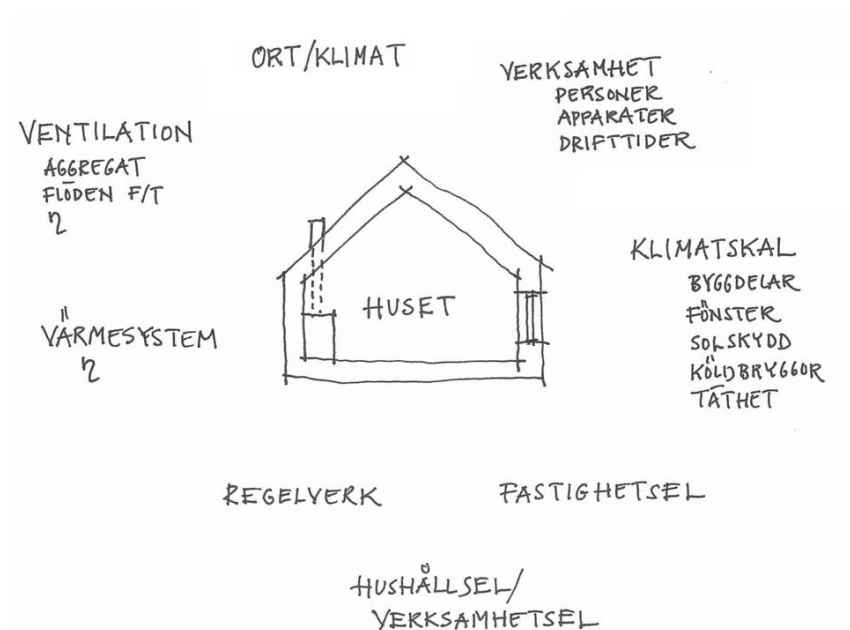 ORT/KLIMAT
VERKSAMHET
PERSONER
APPARATER
DRIFTTIDER
VENTILATION
AGGREGAT
FLÖDEN F/T
η
KLIMATSKAL
BYGGDELAR
FÖNSTER
SOLSKYDD
KÖLDBRYGGOR
TÄTHET
HUSET
VÄRMESYSTEM
η
REGELVERK
FASTIGHETSEL
HUSHÅLLSEL/
VERKSAMHETSEL